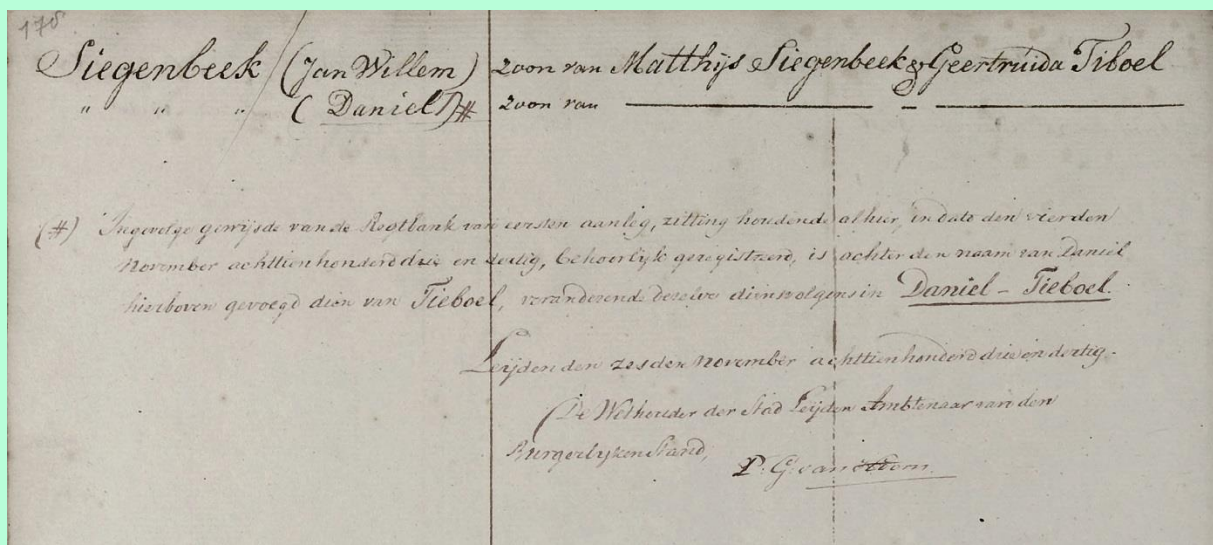 178.
Siegenbeek (Jan Willem) zoon van Matthijs Siegenbeek & Geertruida Tiboel
" " " (Daniel)# zoon van — — —
(#) Ingevolge gewijsde van de Regtbank van eersten aanleg, zitting houdende alhier, in dato den vierden
November achttienhonderd drie en dertig, behoorlijk geregistreerd, is achter den naam van Daniel
hierboven gevoegd dien van Tieboel, veranderende dezelve dienvolgens in Daniel - Tieboel.
Leijden den zesden November achttienhonderd drie en dertig.
De Wethouder der Stad Leijden Ambtenaar van den
Burgerlijken Stand,
P. G. van Hoorn.